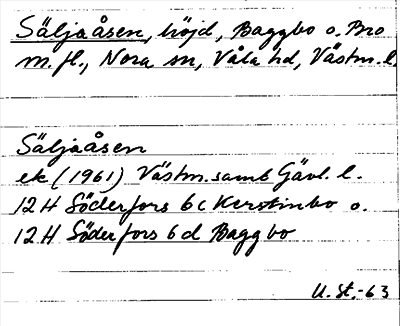 Säljaåsen, höjd, Baggbo o. Bro
m.fl., Nora sn, Våla hd, Västm. l.
Säljaåsen
ek (1961) Västm. samt Gävl. l.
12 H Söderfors 6 c Kerstinbo o.
12 H Söderfors 6 d Baggbo
U. St. -63